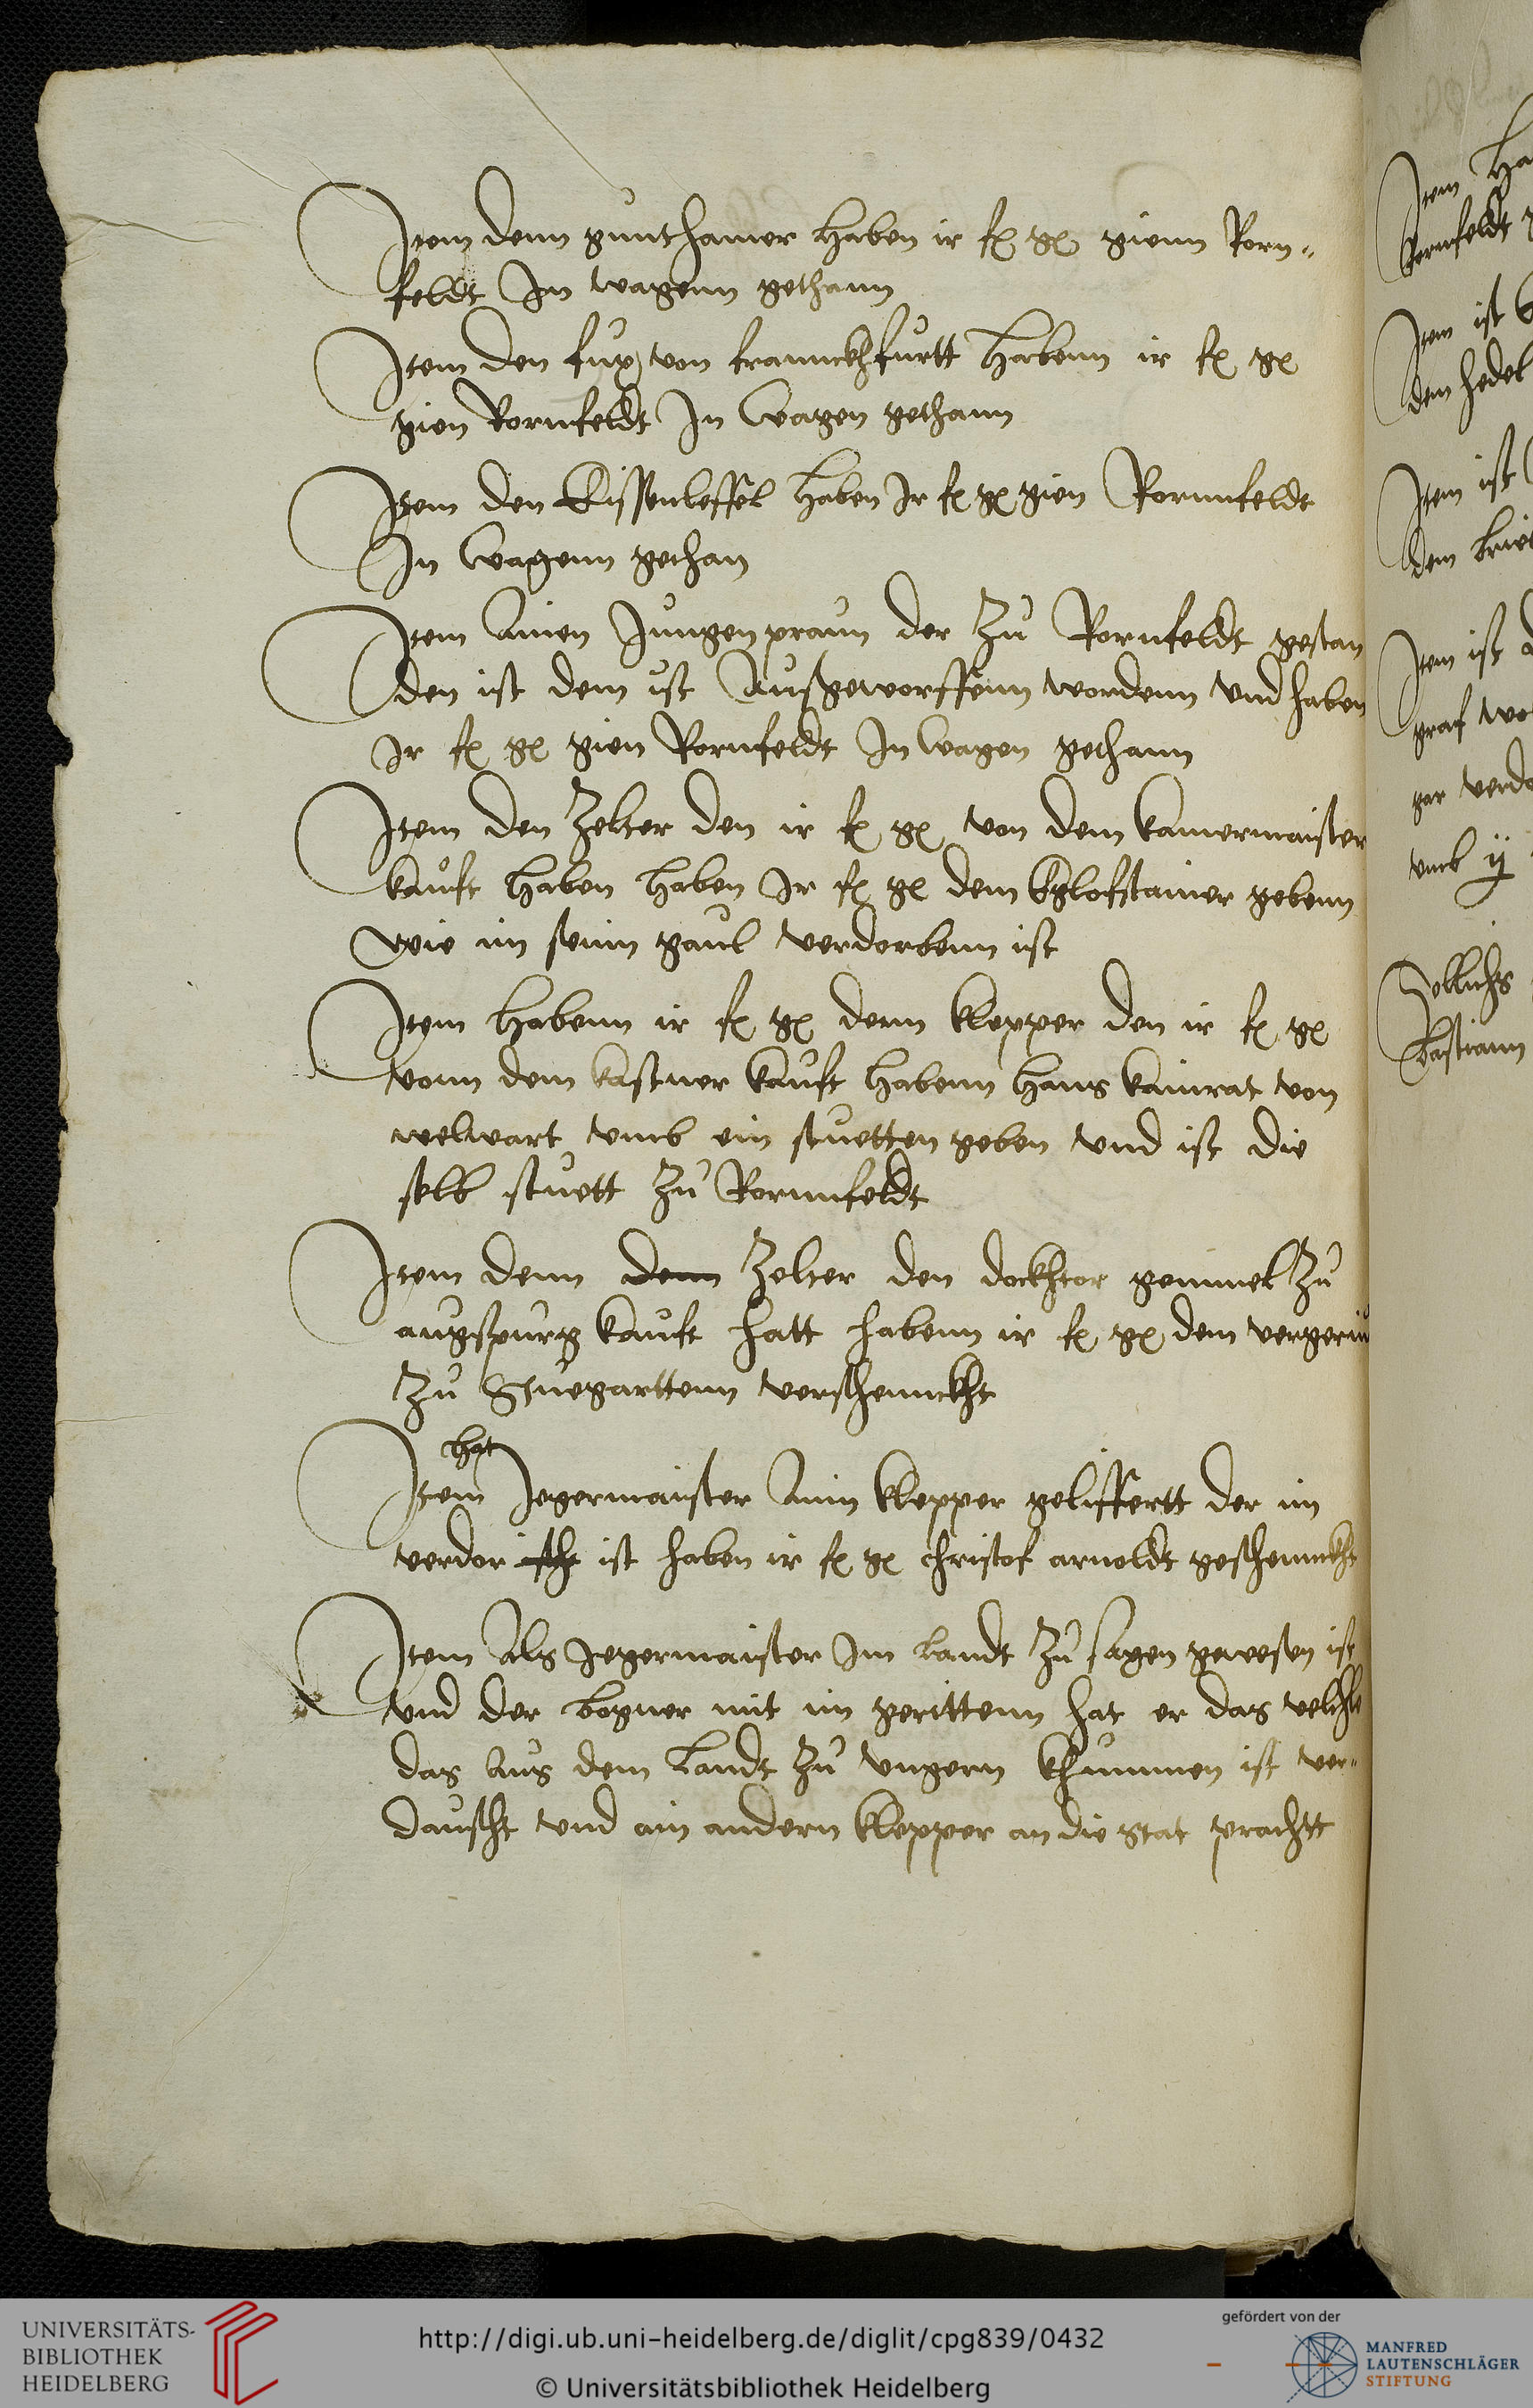 Item denn gunthamer haben ir f g gienn Rorn-
feldt In wagenn gethann
Item den fux von frannckhfurtt habenn ir f g
gien Rornfeldt In wagen gethann
Item den Kissenleffel haben Ir f g gien Rornnfeldt
In wagenn gethan
Item Ainen Jungen praun der Zu Rornfeldt gestan
den ist dem ist Außgeworffenn wordenn vnd haben
Ir f g gien Rornfeldt In wagen gethann
Item den Zelter den ir f g von dem kamermaister
kauft haben haben Ir f g dem Eglofstainer gebenn
wie im seinn gaul verdorbenn ist
Item habenn ir f g denn klepper den ir f g
vonn dem kastner kauft habenn hans kainrat von
welwart vmb ein stuetten geben vnd ist die
selb stuett Zu Rornnfeldt
Item denn denn Zelter den dockhtor gemmel Zu
augspurg kauft hatt habenn ir f g dem
Zu Stuegarttenn verschennckht
hat
Item Jegermaister Ainn klepper geliffertt der im
verdor ist haben ir f g christof arnoldt geschennckht
Item Als Jegermaister Im landt Zu sagen gewesen ist
vnd der bogner mit im gerittenn hat er das
das Aus dem landt Zu vngern khummen ist ver-
dauscht vnd ain andern klepper an die stat prachtt
Item Ha
Rornfeldt
Item ist
dem hedel
Item ist
dem
Item ist
graf
gar verdo
vmb ij
Sollichs
Bastiann
UNIVERSITÄTS-
BIBLIOTHEK
HEIDELBERG
http://digi.ub.uni-heidelberg.de/diglit/cpg839/0432
© Universitätsbibliothek Heidelberg
gefördert von der
MANFRED
LAUTENSCHLÄGER
STIFTUNG